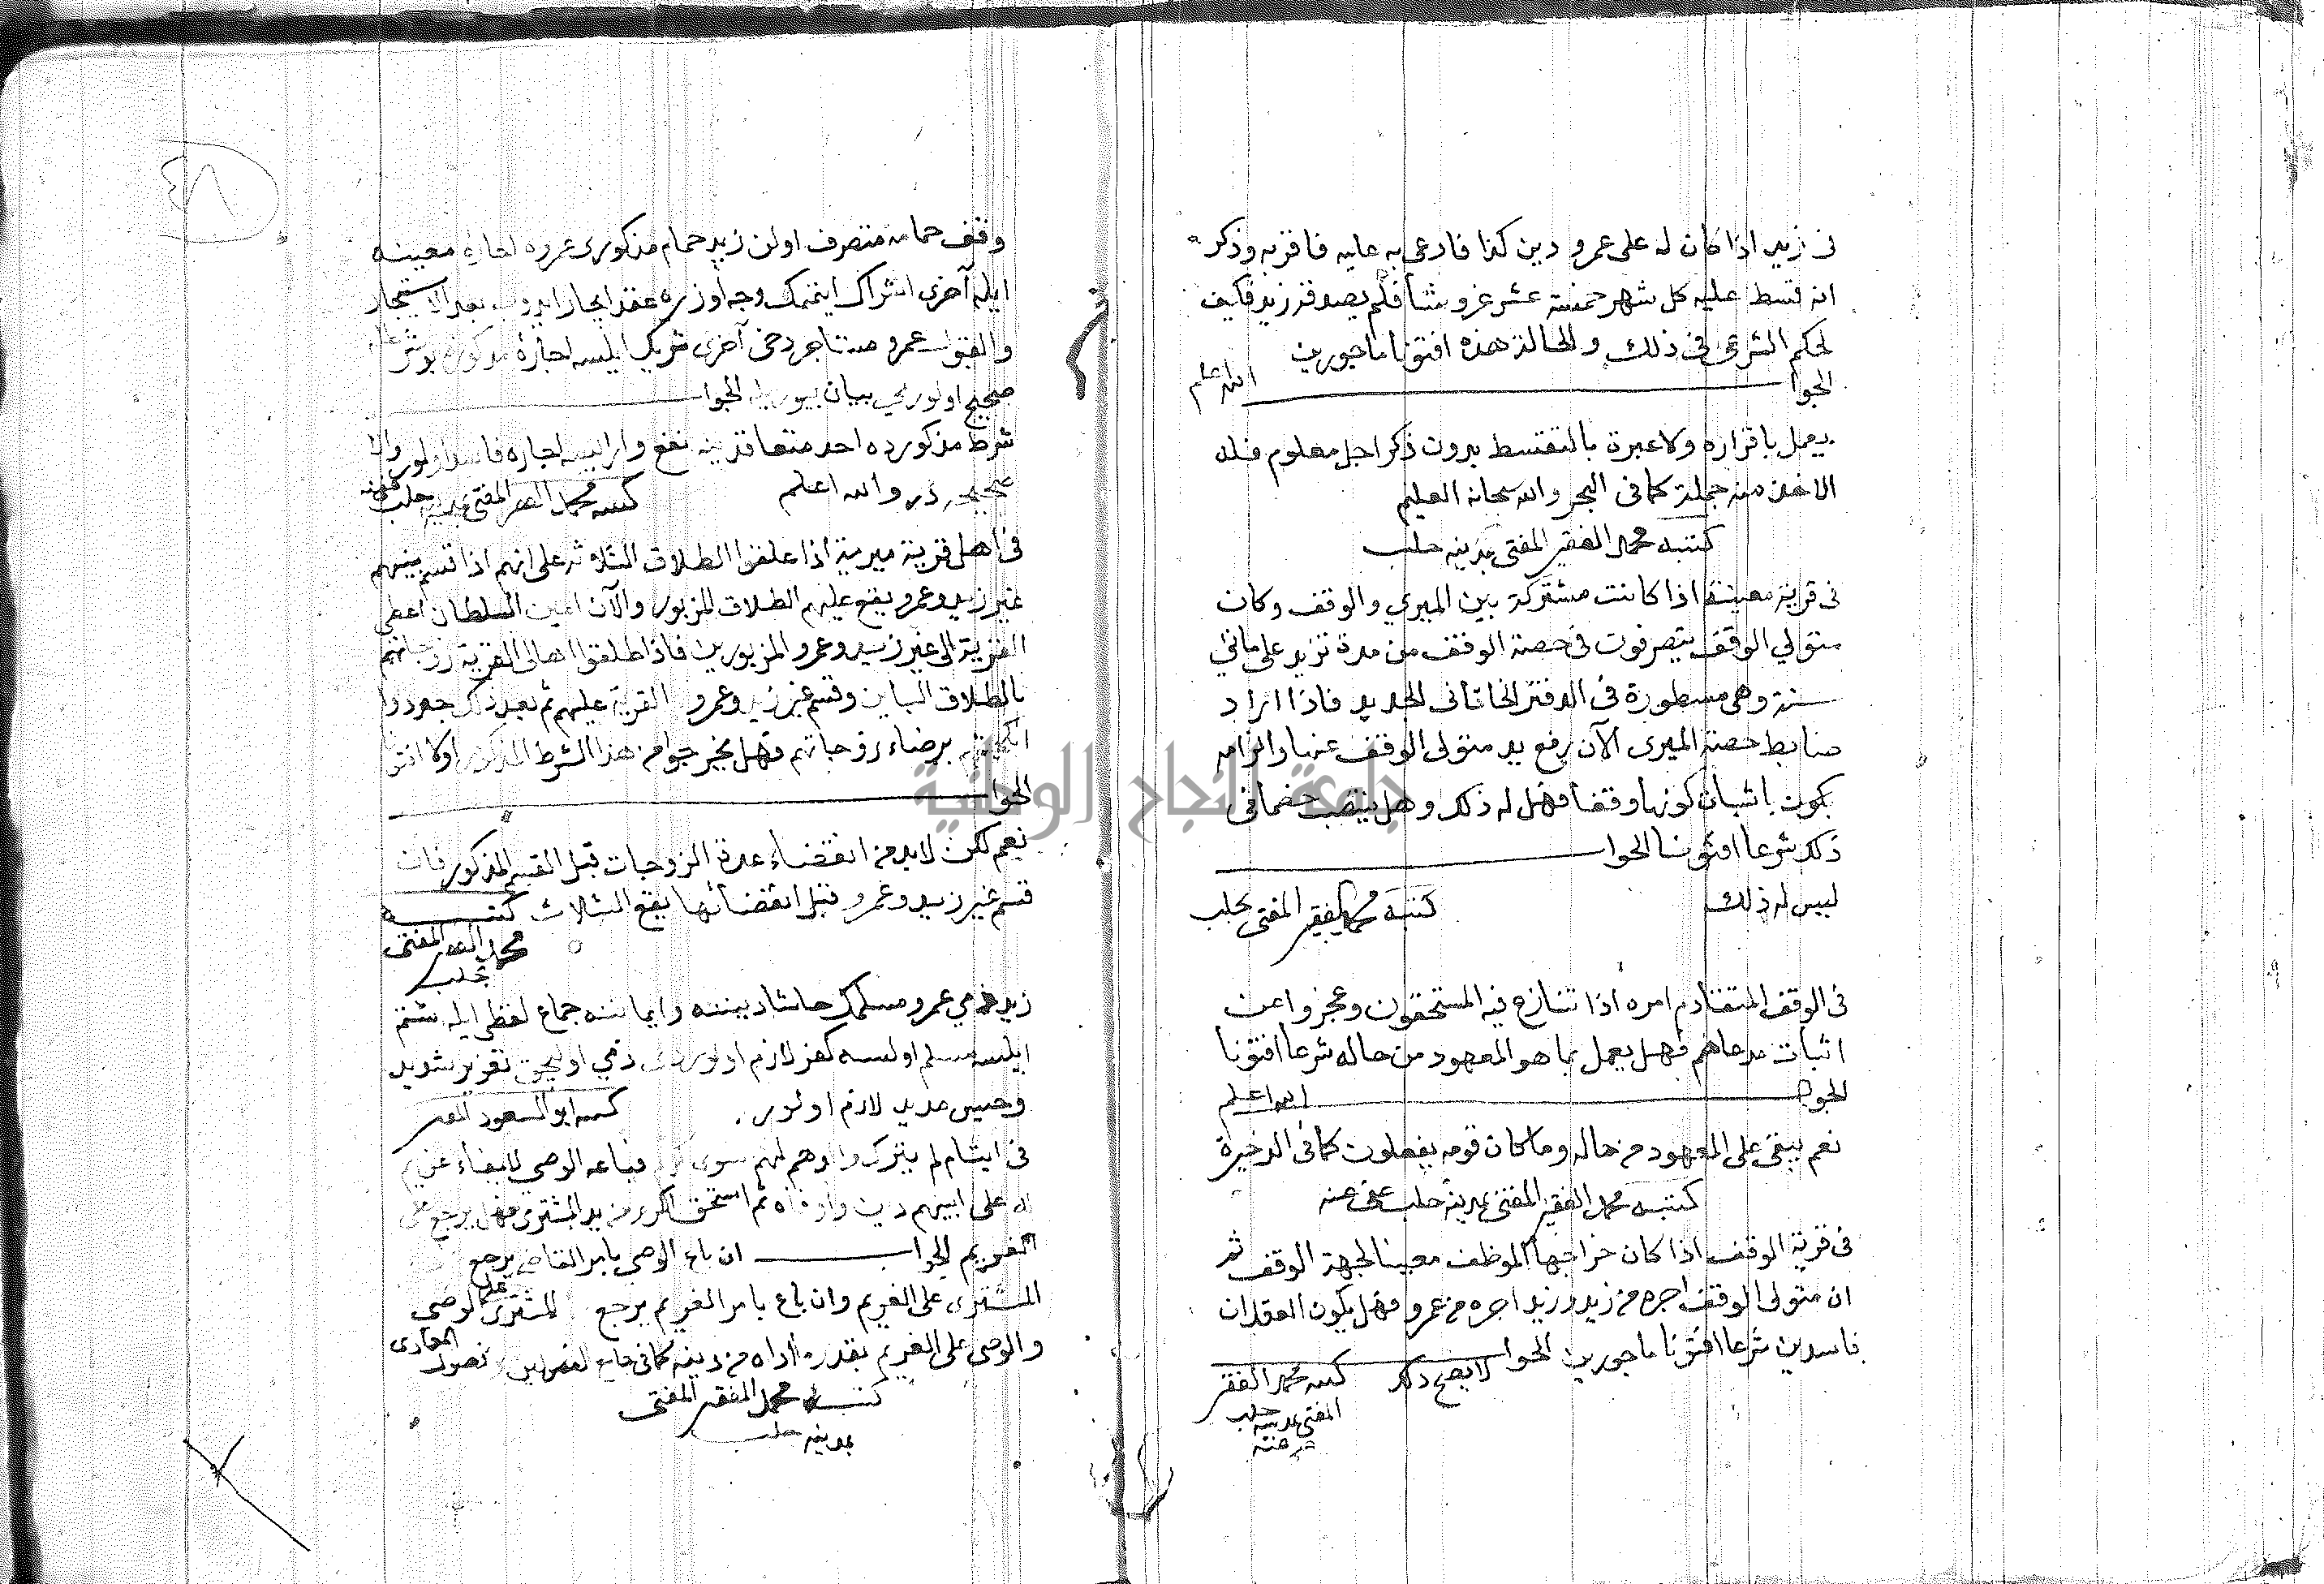 في زيد اذا كان له على عمرو دين كذا فادعى به عليه فاقر به وذكر
انه قسط عليه كل شهر خمسة عشر غروشا فلم يصدقه زيد فكيف
لحكم الشرعي في ذلك والحالة هذه افتونا ماجورين
الجوا الله اعلم
يعمل باقراره ولا عبرة بالتقسط بدون ذكر اجل معلوم فله
الاخذ منه جملة كما في البحر والله سبحانه العليم
كتبه محمد الفقير المفتى بمدينه حلب
في قرية معينة اذا كانت مشتركة بين الميري والوقف وكان
متولي الوقف يتصرفون في حصة الوقف من مدة تزيد على مائتي
سنة وهي مسطورة في الدفتر الخاقاني الجديد فاذا اراد
ضابط حصة الميرى الآن رفع يد متولى الوقف عنها والزامه
بكون باثبات كونها وقفا فهل له ذلك وهل ينتصب خصما في
ذلك شرعا افتونا الجوا
ليس له ذلك كتبه محمد الفقير المفتى بحلب
في الوقف المتقادم امره اذا تنازع فيه المستحقون وعجزوا عن
اثبات مدعاهم فهل يعمل بما هو المعهود من حاله شرعا افتونا
الجوا الله اعلم
نعم يبقى على المعهود من حاله وما كان قومه يفعلون كما في الذخيرة
كتبه محمد الفقير المفتى بمدينة حلب عفى عنه
في قرية الوقف اذا كان خراجها الموظف معينا لجهة الوقف ثم
ان متولى الوقف اجره من زيد وزيد اجره من عمرو فهل يكون العقدان
فاسدين شرعا افتونا ماجورين الجوا لا يصح ذلك كتبه محمد الفقير
المفتى بمدينة حلب
وقف حمامه متصرف اولن زيد حمام مذكورى عمروه اجاره معينه
ايله آخرى اشراك ايتمك وجه اوزره عقد ايجار ايدوب بعد الاستيجار
والقبول عمرو مستاجر دخى آخرى شريك ايلسه اجارة مذكوره
صحيح اولورمي بيان بيوريله الجوا
شرط مذكورده احد متعاقدينه نفع وار ايسه اجاره فاسد اولور والا
صحيحدر والله اعلم كتبه محمد الفقير المفتى بمدينة حلب
في اهل قرية ميرية اذا علقوا الطلاق الثلاثه على انهم اذا قسم بينهم
غير زيد وعمرو يقع عليهم الطلاق المزبور والآن امين السلطان اعطى
القرية الى غير زيد وعمرو المزبورين فاذا طلقوا اهالى القرية زوجاتهم
بالطلاق الباين وقسم غير زيد وعمرو القرية عليهم ثم بعد ذلك جددوا
برضاء زوجاتهم فهل هذا الشرط المذكور او لا افتونا
الجوا
نعم لكن لابد من انقضاء عدة الزوجات قبل القسم المذكور فان
قسم غير زيد وعمرو قبل انقضائها يقع الثلاث كتبه
محمد الفقير المفتى
بحلب
زيد ذمي عمرو مسلمك حاشا ديننه وايماننه جماع لفظى ايله شتم
ايلسه مسلم اولسه كفر لازم اولور ذمي اوليجق تعزير شديد
وحبس مديد لازم اولور كتبه ابو السعود الفقير
في ايتام لم يترك والدهم لهم سوى فباعه الوصي لايفاء غريم
له على ابيهم دين واوفاه ثم استحق الكرم من يد المشترى فهل يرجع على
الغريم الجواب ان باع الوصي بامر القاضي يرجع
المشترى على الغريم وان باع بامر الغريم يرجع المشترى على الوصي
والوصي على الغريم بقدر ما اداه من دينه كما في جامع الفصولين
كتبه محمد الفقير المفتى
بمدينه حلب
جامعة النجاح الوطنية